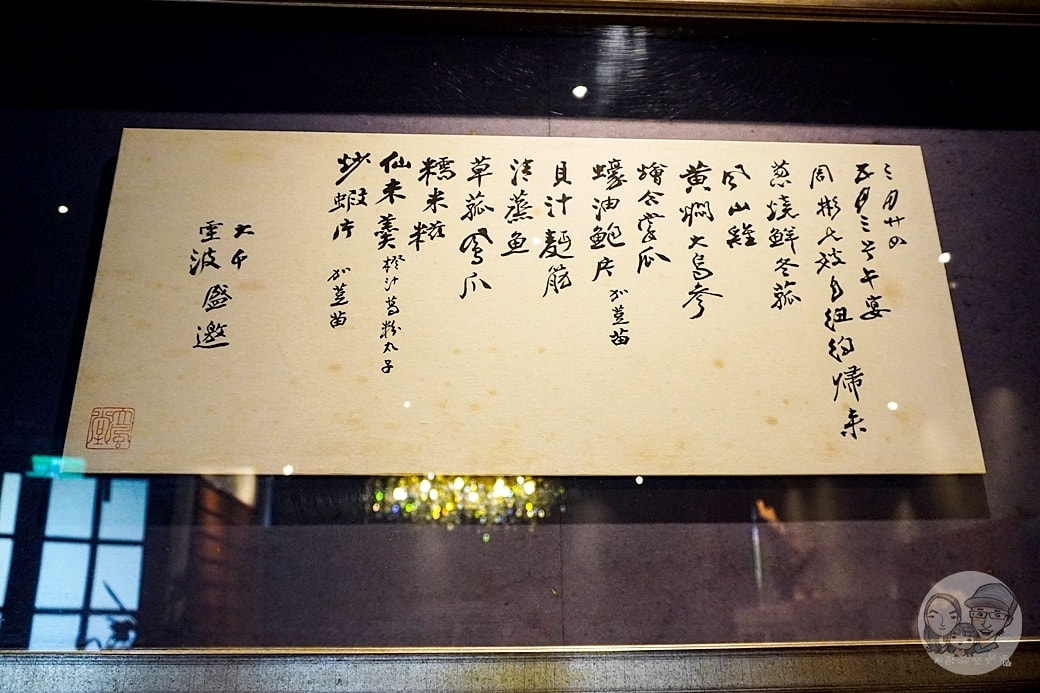 三月廿四
五月三號午宴
周彬七嫂自紐約歸來
蔥燒鮮冬菰
風山雞
黃燜大烏參
燴合掌瓜
蠔油鮑片 加荳苗
貝汁麵筋
清蒸魚
草菰鳳爪
糯米糍
仙來羹 橙汁葛粉丸子
炒蝦片 加荳苗
大千
雯波 盛邀